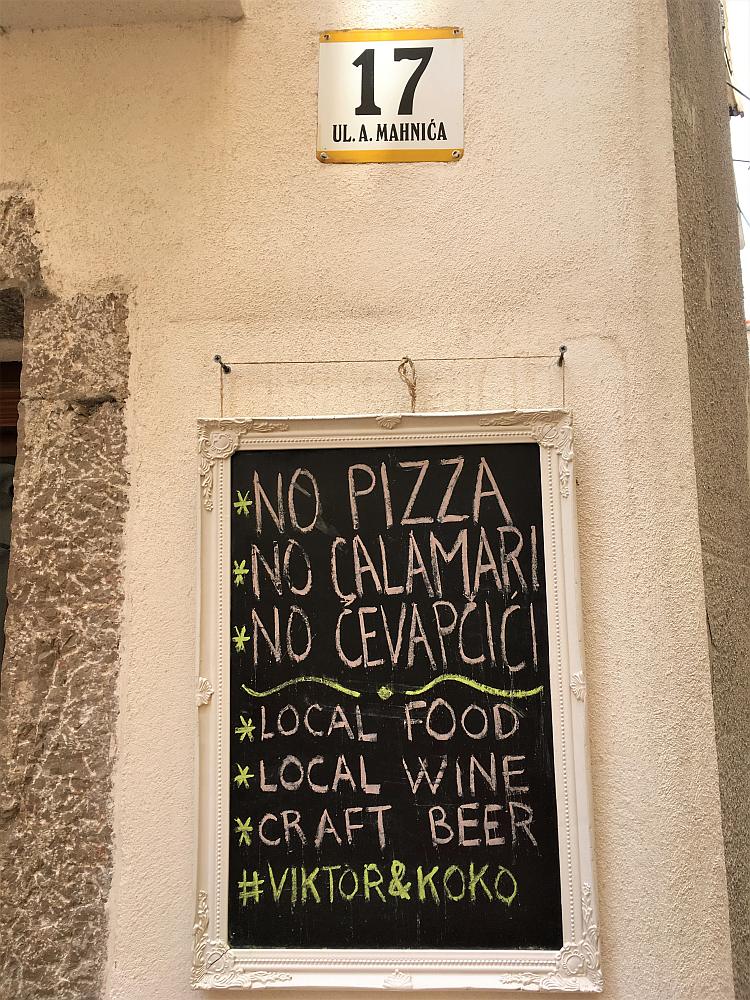 17
UL. A. MAHNIĆA
*NO PIZZA
*NO CALAMARI
*NO ČEVAPČIĆI
*LOCAL FOOD
*LOCAL WINE
*CRAFT BEER
#VIKTOR&KOKO